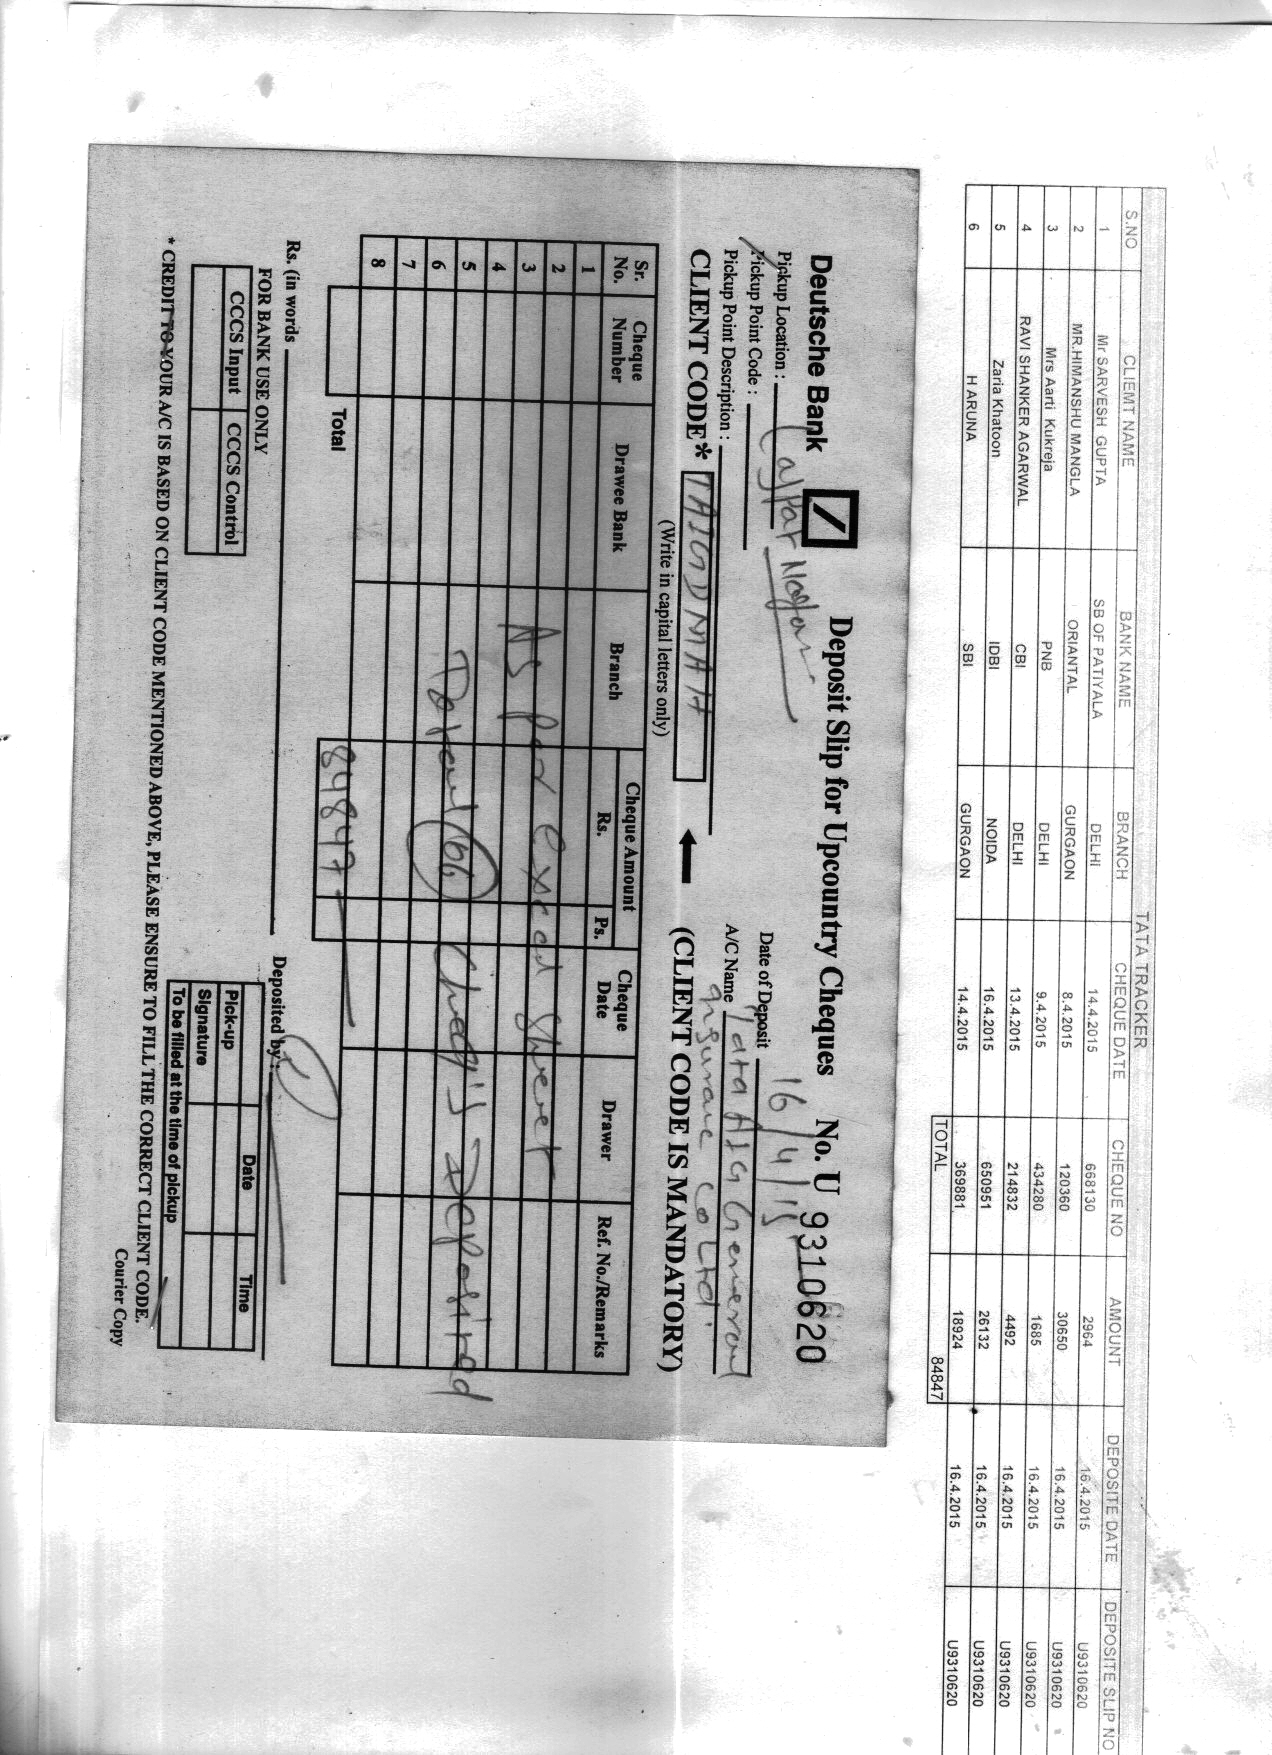 TATA TRACKER
S.NO CLIEMT NAME BANK NAME BRANCH CHEQUE DATE CHEQUE NO AMOUNT DEPOSITE DATE DEPOSITE SLIP NO
1 Mr SARVESH GUPTA SB OF PATIYALA DELHI 14.4.2015 668130 2964 16.4.2015 U9310620
2 MR.HIMANSHU MANGLA ORIANTAL GURGAON 8.4.2015 120360 30650 16.4.2015 U9310620
3 Mrs Aarti Kukreja PNB DELHI 9.4.2015 434280 1685 16.4.2015 U9310620
4 RAVI SHANKER AGARWAL CBI DELHI 13.4.2015 214832 4492 16.4.2015 U9310620
5 Zaria Khatoon IDBI NOIDA 16.4.2015 650951 26132 16.4.2015 U9310620
6 H ARUNA SBI GURGAON 14.4.2015 369881 18924 16.4.2015 U9310620
TOTAL 84847
Deutsche Bank Deposit Slip for Upcountry Cheques No. U 9310620
Pickup Location : Lajpat Nagar Date of Deposit 16/4/15
Pickup Point Code : A/C Name Tata AIG General
Pickup Point Description : Insurance Co Ltd.
CLIENT CODE* TAIGDMAH (CLIENT CODE IS MANDATORY)
(Write in capital letters only)
Sr. No. Cheque Number Drawee Bank Branch Cheque Amount Rs. Ps. Cheque Date Drawer Ref. No./Remarks
1
2
3 As per excel sheet
4
5 Total (06) Cheq's Deposited
6
7
8
Total 84847
Rs. (in words Deposited by :
FOR BANK USE ONLY
CCCS Input CCCS Control
Date Time
Pick-up
Signature
To be filled at the time of pickup
* CREDIT TO YOUR A/C IS BASED ON CLIENT CODE MENTIONED ABOVE, PLEASE ENSURE TO FILL THE CORRECT CLIENT CODE.
Courier Copy